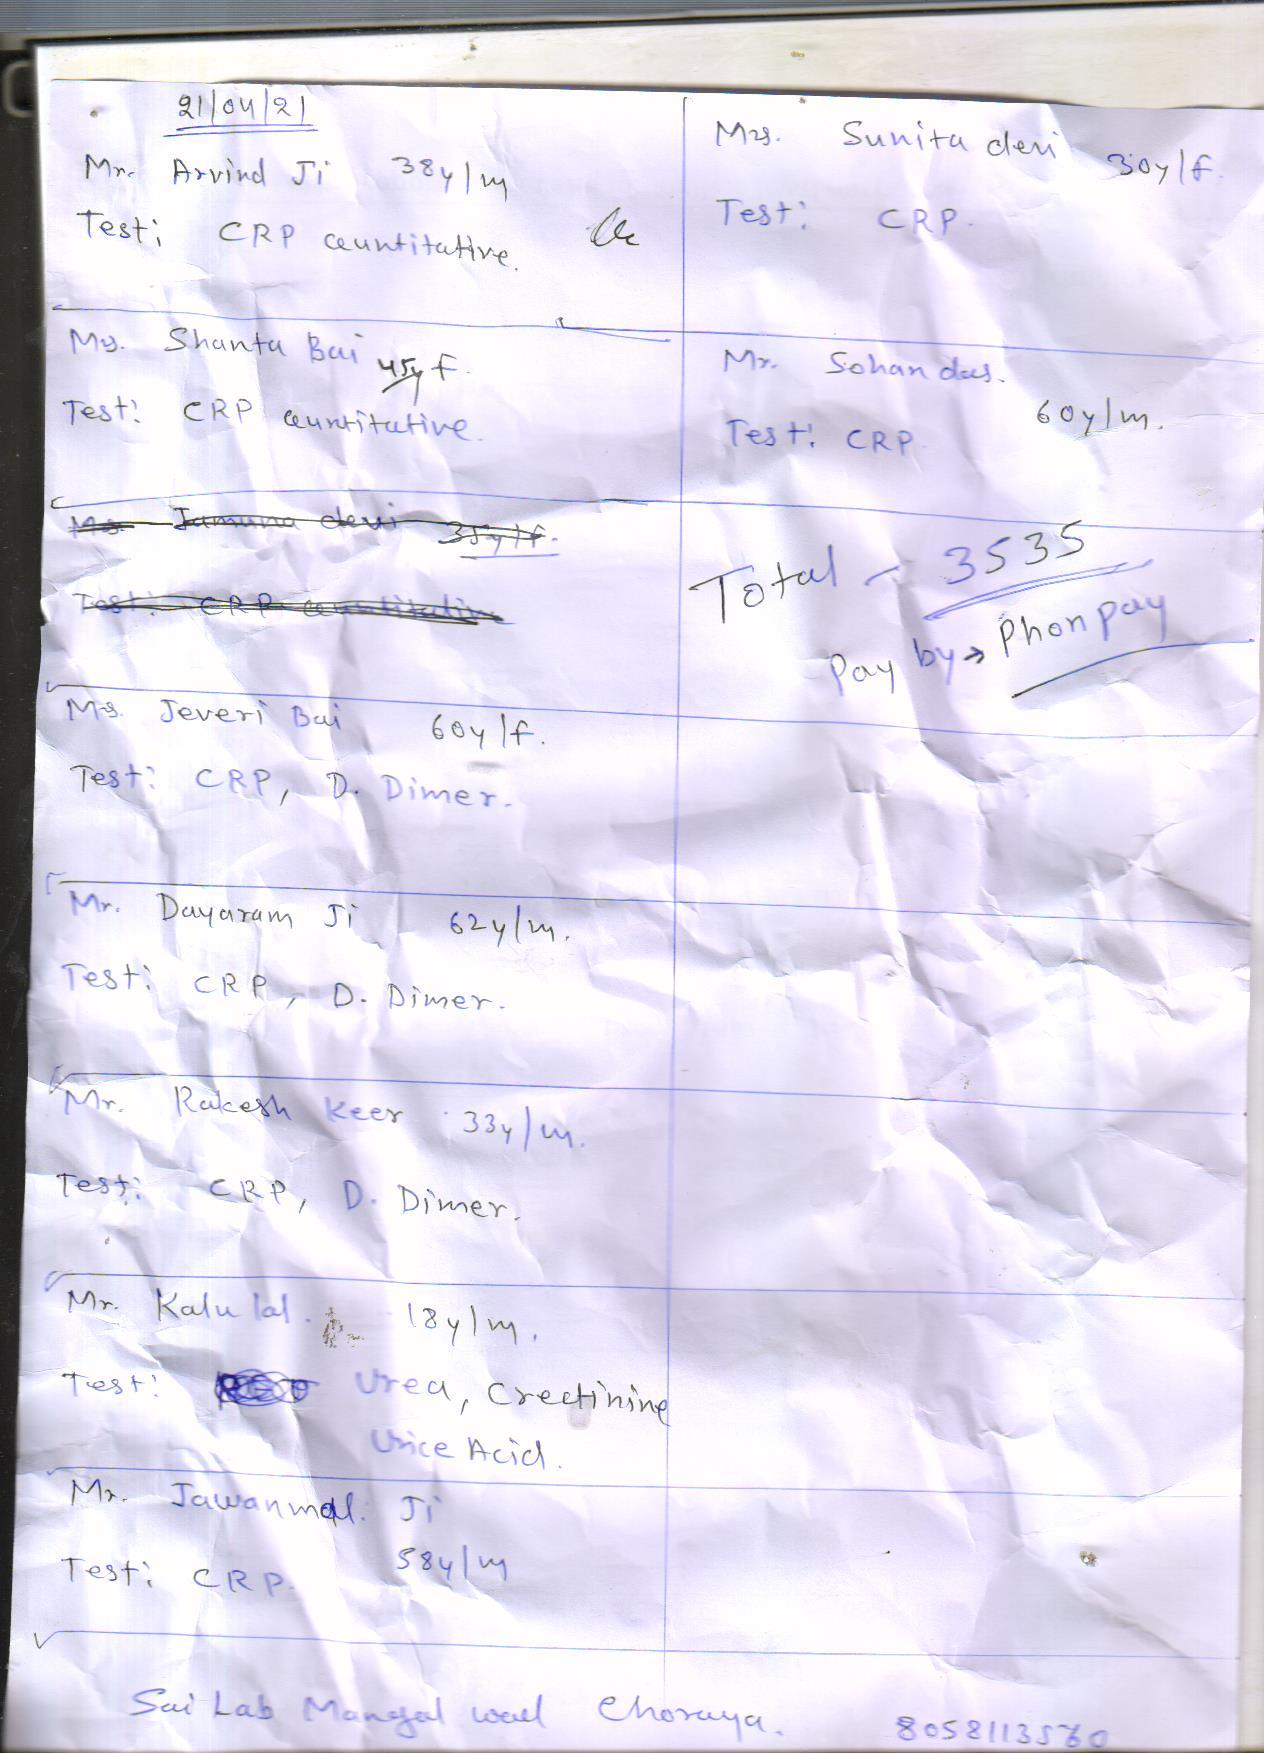 21/04/21
Mr. Arvind Ji 38y/m
Test: CRP ceuntitative.
Ms. Shanta Bai 45y f.
Test: CRP ceuntitative.
Ms. Jamuna devi 35y/f.
Test: CRP ceuntitative
Ms. Jeveri Bai 60y/f.
Test: CRP, D. Dimer.
Mr. Dayaram Ji 62y/m.
Test: CRP, D. Dimer.
Mr. Rakesh Keer 33y/m.
Test: CRP, D. Dimer.
Mr. Kalu lal. 18y/m.
Test: Urea, Crectinine
Urice Acid.
Mr. Jawanmal. Ji
58y/m
Test: CRP.
Mrs. Sunita devi 30y/f.
Test: CRP.
Mr. Sohan das.
60y/m.
Test: CRP.
Total - 3535
Pay by → Phonpay
Sai Lab Mangal wad Choraya. 8058113560